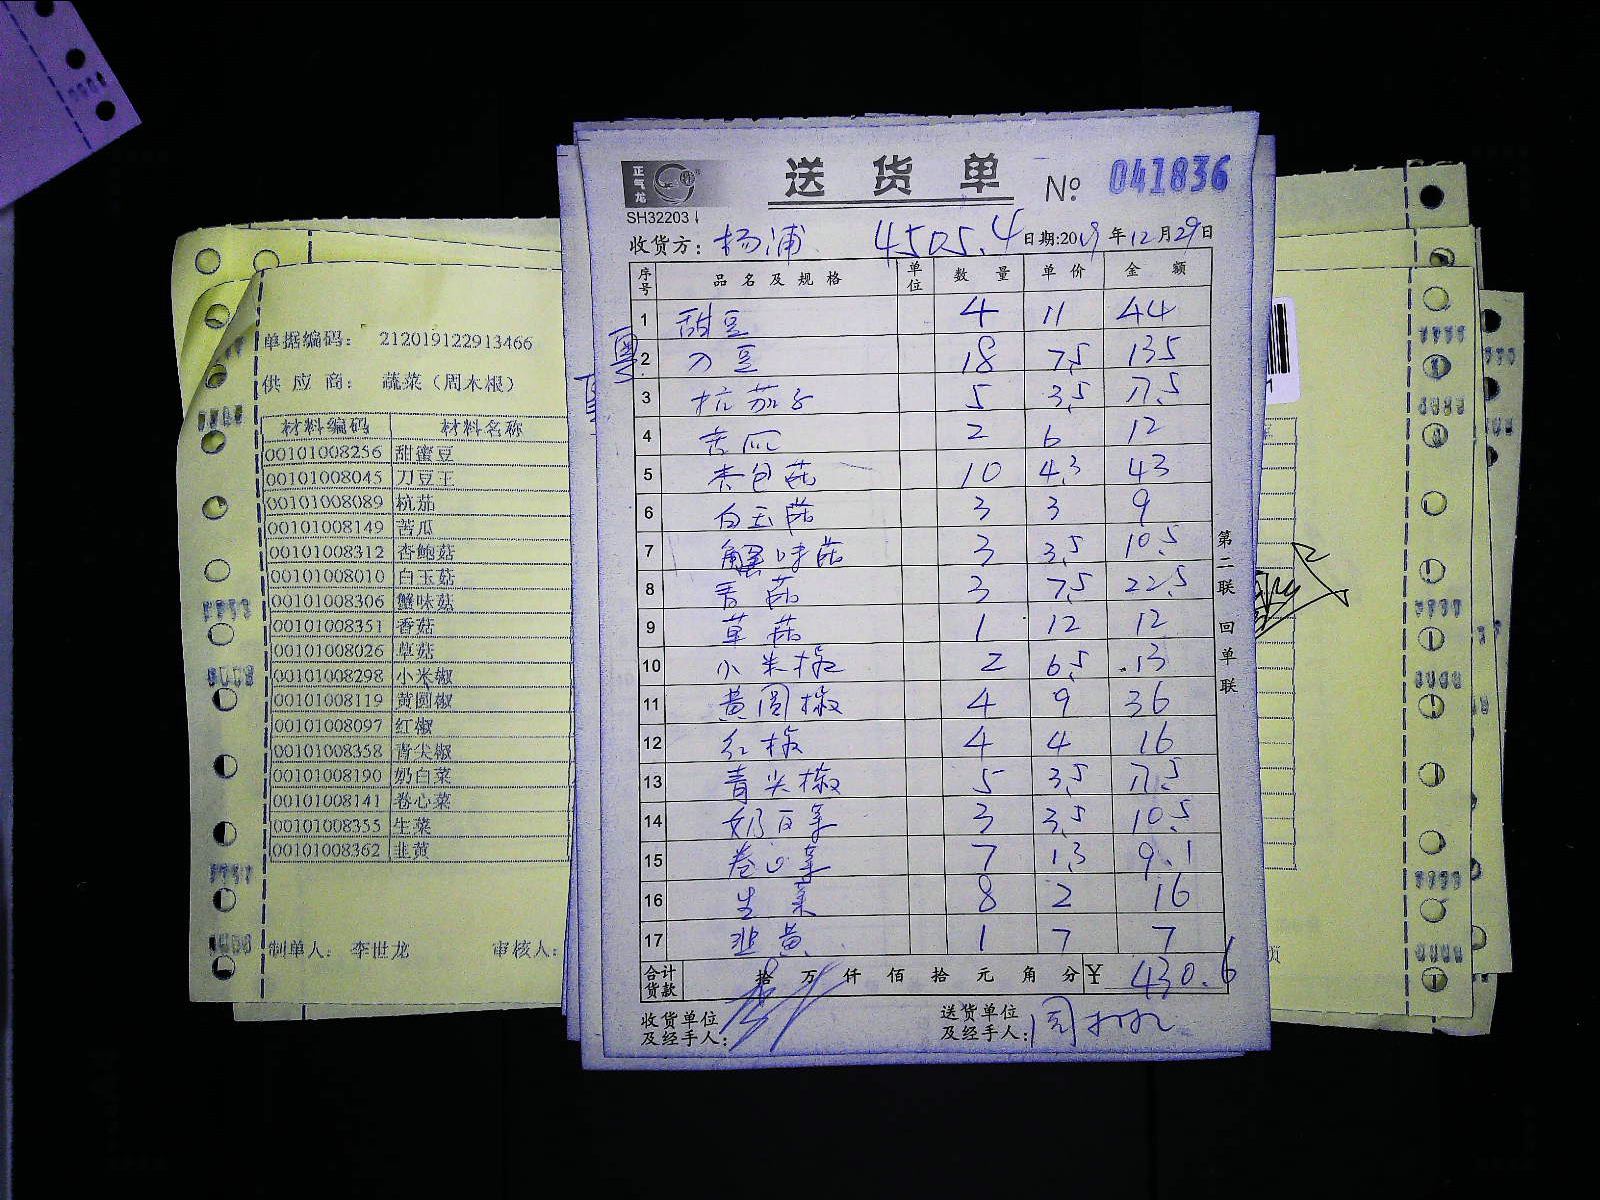 正气龙
SH32203
送货单 № 041836
收货方: 杨浦 4505.4 日期:2019年12月29日
序号 品名及规格 单位 数量 单价 金额
1 甜豆 4 11 44
2 刀豆 18 7.5 135
3 杭茄子 5 3.5 17.5
4 苦瓜 2 6 12
5 杏包菇 10 4.3 43
6 白玉菇 3 3 9
7 蟹味菇 3 3.5 10.5
8 香菇 3 7.5 22.5
9 草菇 1 12 12
10 小米椒 2 6.5 13
11 黄圆椒 4 9 36
12 红椒 4 4 16
13 青尖椒 5 3.5 17.5
14 奶白菜 3 3.5 10.5
15 卷心菜 7 1.3 9.1
16 生菜 8 2 16
17 韭黄 1 7 7
合计货款 拾万仟佰拾元角分 ¥ 430.6
收货单位及经手人:
送货单位及经手人:
第二联 回单联
单据编码: 212019122913466
供应商: 蔬菜(周木根)
材料编码 材料名称
00101008256 甜蜜豆
00101008045 刀豆王
00101008089 杭茄
00101008149 苦瓜
00101008312 杏鲍菇
00101008010 白玉菇
00101008306 蟹味菇
00101008351 香菇
00101008026 草菇
00101008298 小米椒
00101008119 黄圆椒
00101008097 红椒
00101008358 青尖椒
00101008190 奶白菜
00101008141 卷心菜
00101008355 生菜
00101008362 韭黄
制单人: 李世龙 审核人:
页